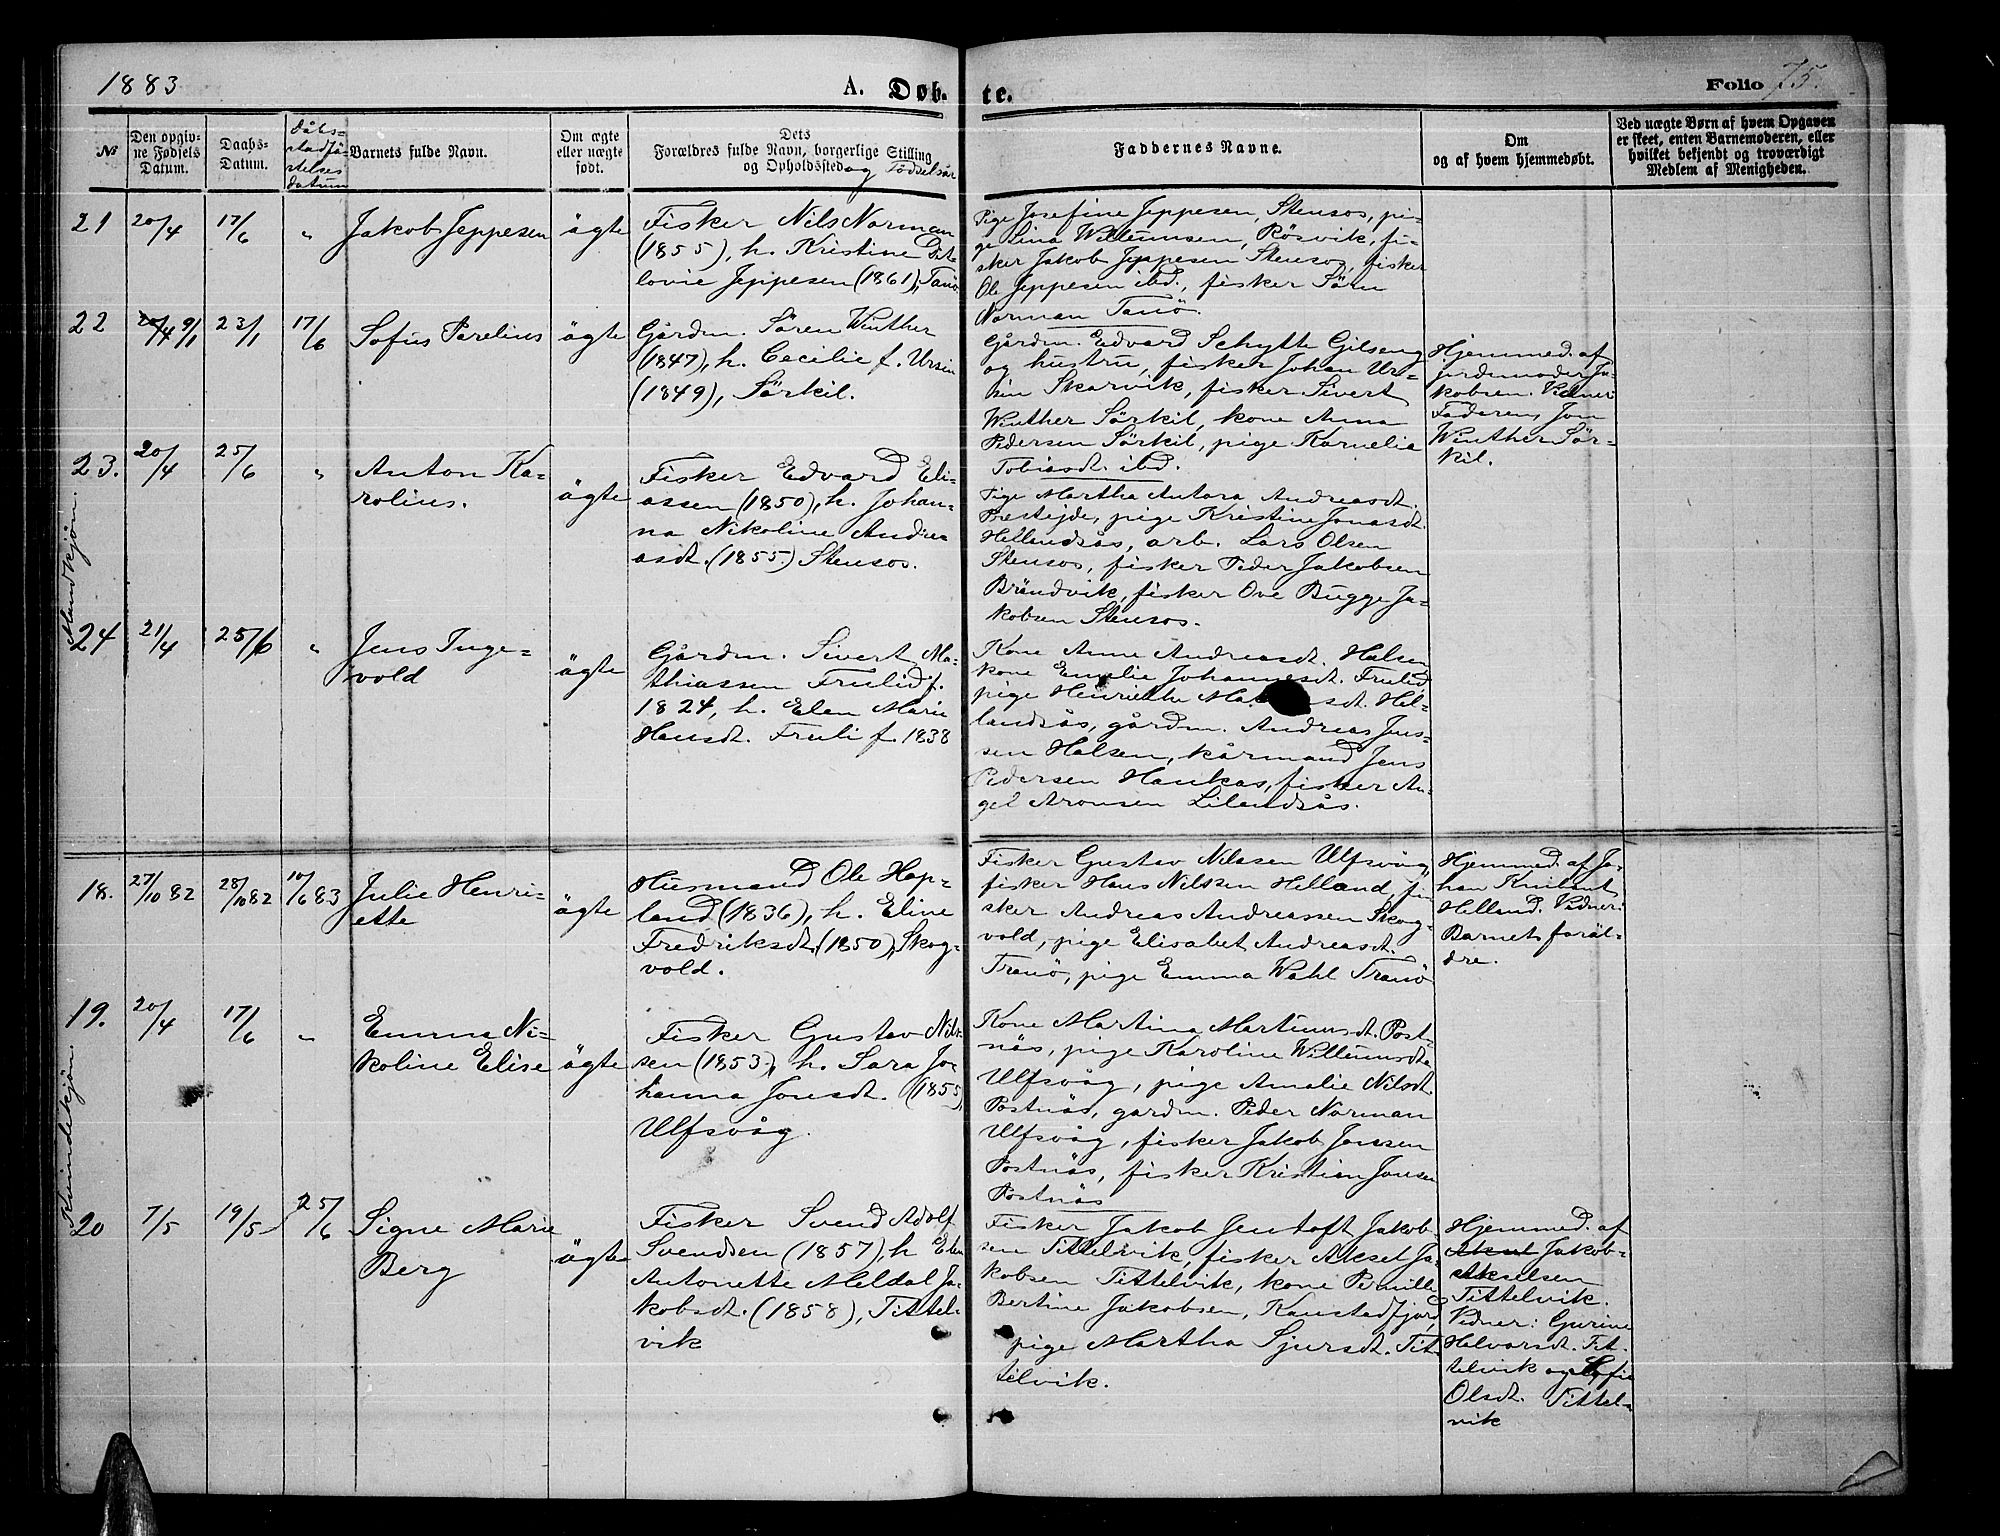 1883
A. Døb-
te.
Folio 75.
№
Den opgiv-
ne Fødsels
Datum.
Daabs-
Datum.
dåbs-
stadfä-
stelses
datum
Barnets fulde Navn.
Om ægte
eller uægte
født.
Dets
Forældres fulde Navn, borgerlige Stilling
og Opholdssted og Födselsår
Faddernes Navne.
Om
og af hvem hjemmedøbt.
Ved uægte Børn af hvem Opgaven
er skeet, enten Barnemoderen, eller
hvilket bekjendt og troværdigt
Medlem af Menigheden.
Mandkjön.
21
20/4
17/6
"
Jakob Jeppesen
ägte
Fisker Nils Norman
(1855), h. Kristine Dit
lovie Jeppesen (1861), Tanö
Pige Josefine Jeppesen, Stensos, pi-
ge Lina Willumsen, Rösvik, fi-
sker Jakob Jeppesen Stensos, fisker
Ole Jeppesen ibd., fisker Sören
Norman Tanö.
22
20/4 9/1
23/1
17/6
Sofus Parelius
ägte
Gårdm. Sören Winther
(1847), h. Cecilie f. Ursin
(1849), Sörkil.
Gårdm. Edvard Schytte Gilseng
og hustru, fisker Johan Ur-
sin Skarvik, fisker Sivert
Winther Sörkil, kone Anna
Pedersen Sörkil, pige Kornelia
Tobiasdt. ibd.
Hjemmed. af
jordemoder Ja-
kobsen. Vidner:
Faderen, Jon
Winther Sör-
kil.
23.
20/4
25/6
"
Anton Ka-
rolius.
ägte
Fisker Edvard Eli-
assen (1850), h. Johan-
na Nikoline Andre-
asdt. (1855) Stensos.
Pige Martha Antora Andreasdt.
Prestejde, pige Kristine Jonasdt.
Hellandsås, arb. Lars Olsen
Stensos, fisker Peder Jakobsen
Brändvik, fisker Ove Bugge Ja-
kobsen Stensos.
24
21/4
25/6
"
Jens Inge-
vold
ägte
Gårdm. Sivert Ma-
thiassen Frulid f.
1824, h. Elen Marie
Hansdt. Fruli f. 1838
Kone Anne Andreasdt. Halsen
kone Emelie Johannesdt. Frulid
pige Henriette Ma sdt. Hel-
landsås, gårdm. Andreas Jens-
sen Halsen, kårmand Jens
Pedersen Haukås, fisker An-
gel Aronsen Lilandsås.
Kvindekjön.
18.
27/10 82
28/10 82
10/6 83
Julie Henri-
ette
ägte
Husmand Ole Hop-
land (1836), h. Eline
Fredriksdt. (1850), Skog-
vold.
Fisker Gustav Nilssen Ulfsvåg
fisker Hans Nilssen Helland, fi
sker Andreas Andreassen Skog-
vold, pige Elisabet Andreasdt.
Tranö, pige Emma Wahl Tranö
Hjemmed. af Jo-
han
Helland. Vidner:
Barnets foräl-
dre.
19.
20/4
17/6
"
Emma Ni-
koline Elise
ägte
Fisker Gustav Nils-
sen (1853), h. Sara Jo-
hanna Jonsdt. (1855),
Ulfsvåg.
Kone Martina Martinusdt. Post-
näs, pige Karoline Willumsdt.
Ulfsvåg, pige Amalie Nilsdt.
Postnäs, gårdm. Peder Norman
Ulfsvåg, fisker Jakob Jonssen
Postnäs, fisker Kristian Jonsen
Postnäs
20
7/5
19/5
25/6
Signe Marie
Berg
ägte
Fisker Svend Adolf
Svendsen (1857), h Elen
Antonette Meldal Ja-
kobsdt. (1858), Tittel-
vik
Fisker Jakob Jentoft Jakob-
sen Tittelvik, fisker Aksel Ja-
kobsen Tittelvik, kone Pernille
Bertine Jakobsen, Kanstadfjord,
pige Martha Sjursdt. Tit-
telvik.
Hjemmed. af
Jakob
Akselsen
Tittelvik.
Vidner: Gurine
Halvorsdt. Tit-
telvik og Sofie
Olsdt. Tittel-
vik